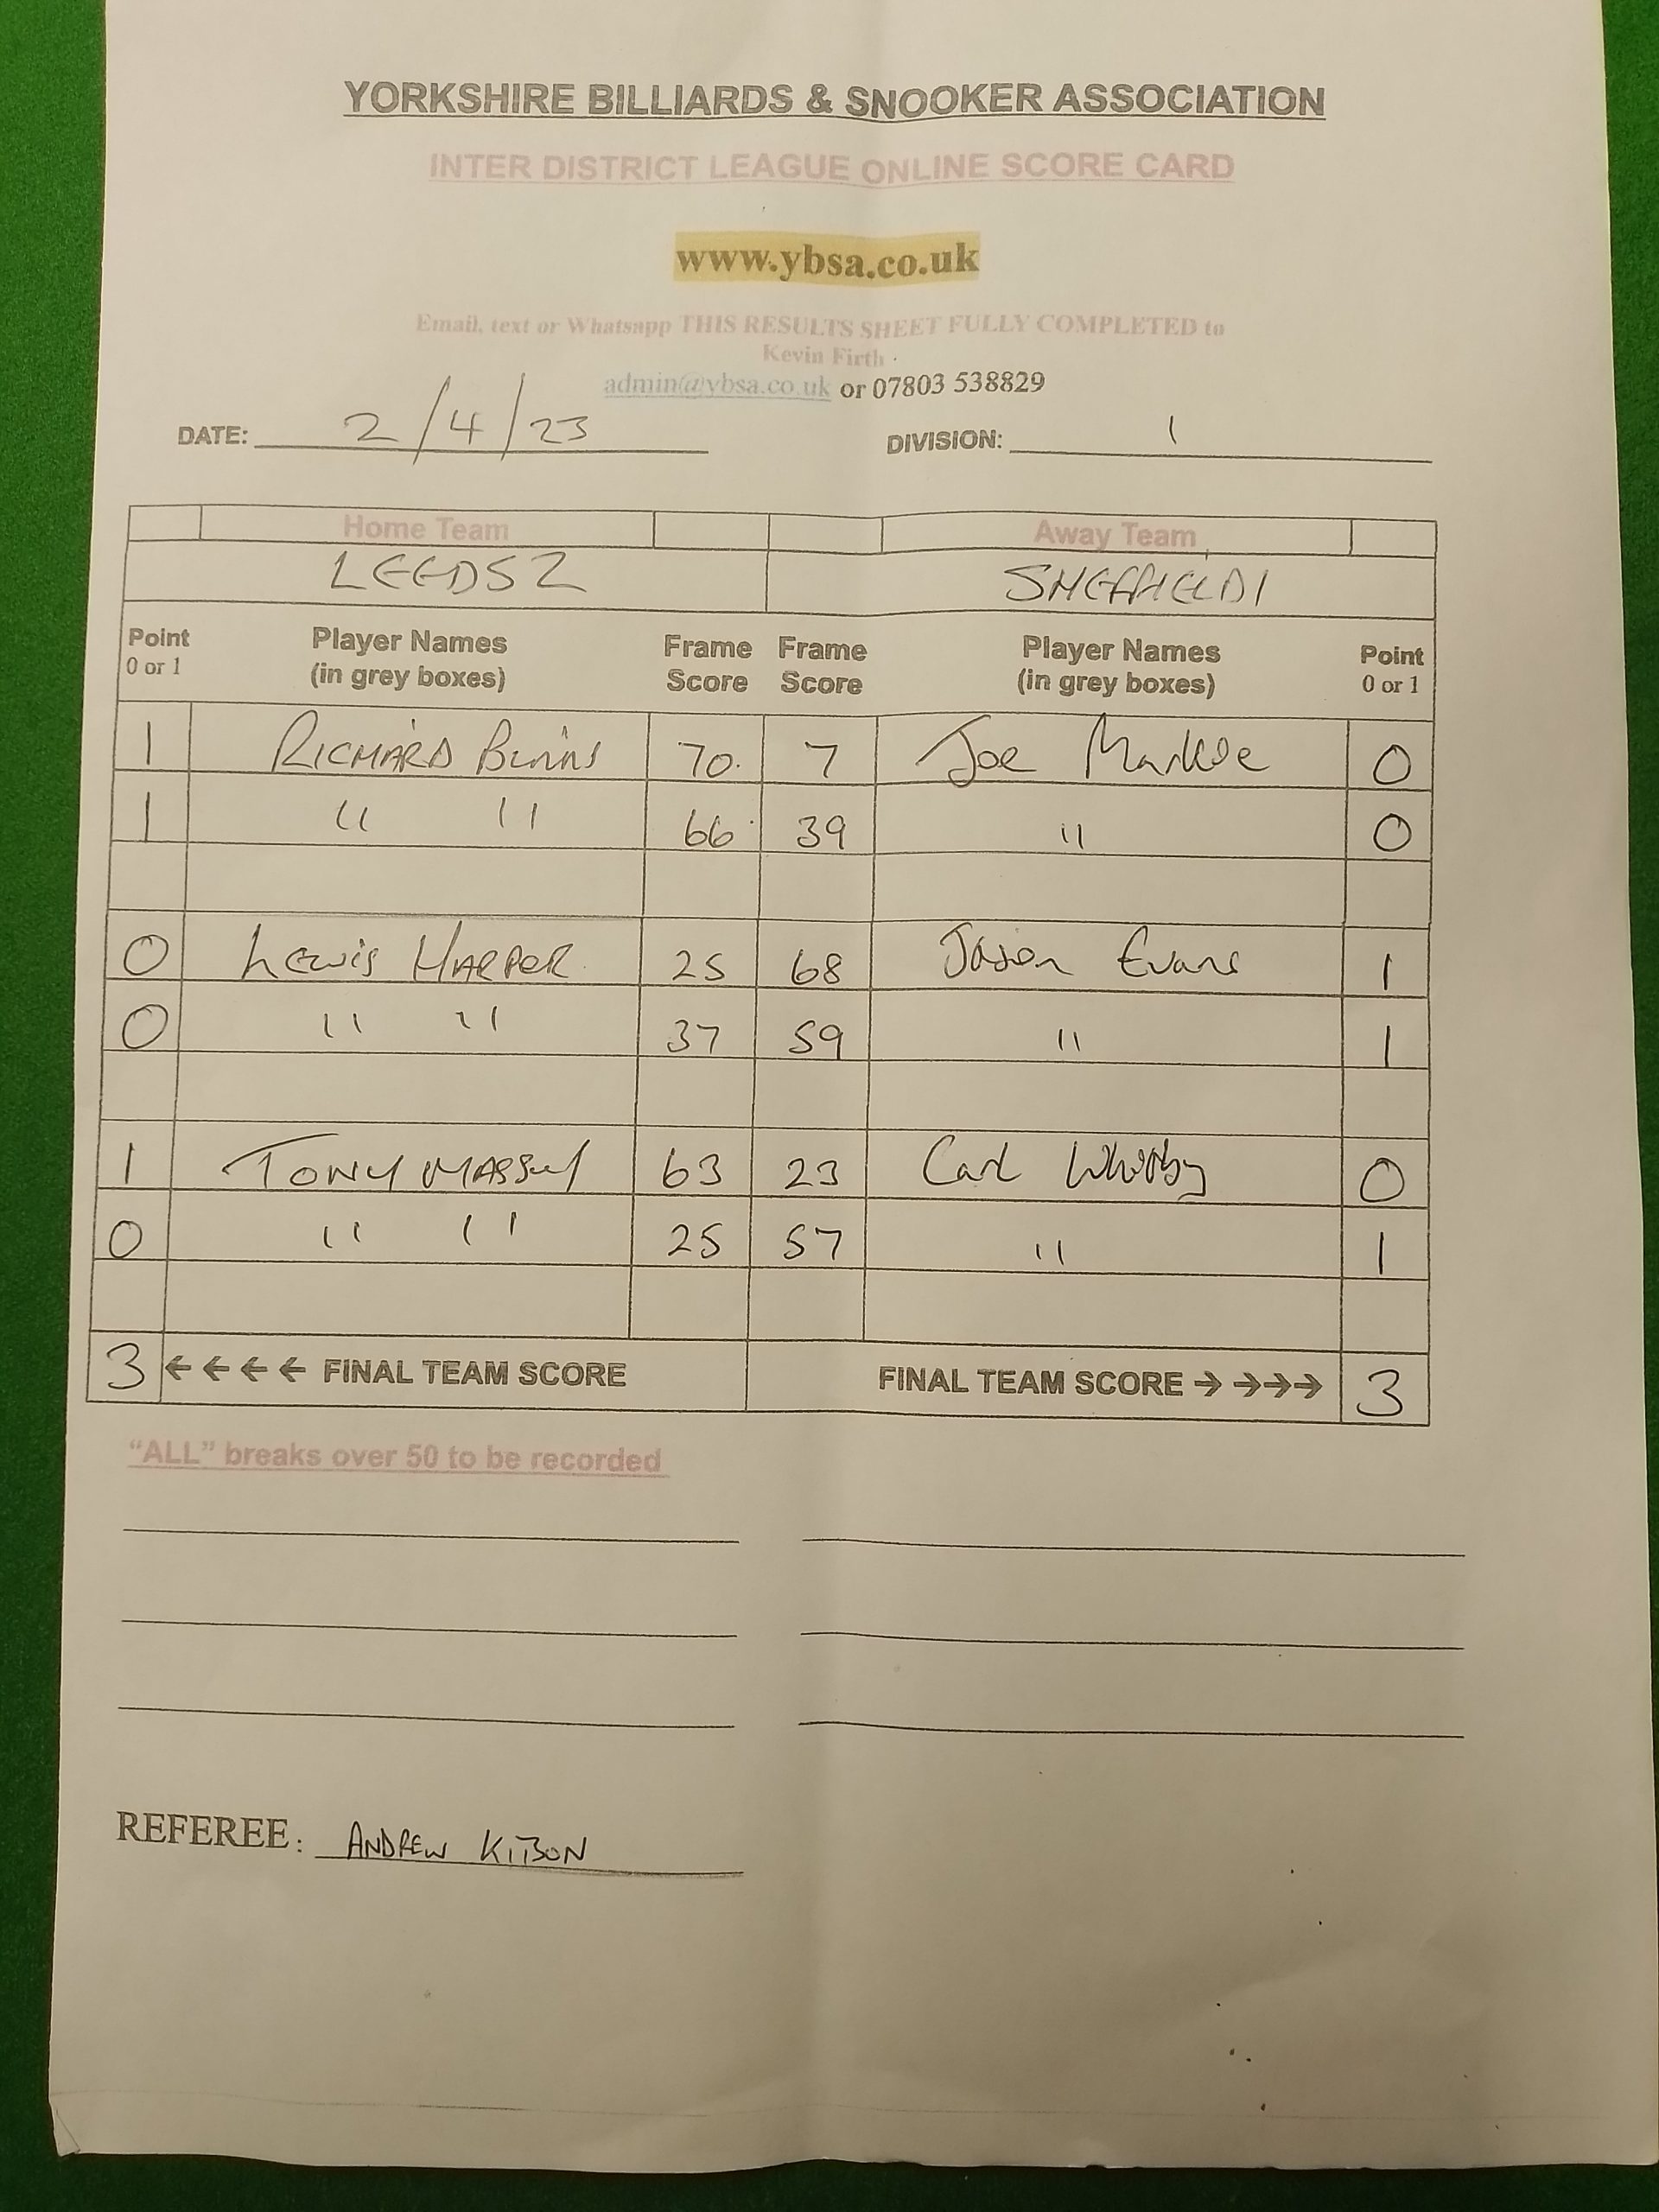 YORKSHIRE BILLIARDS & SNOOKER ASSOCIATION
INTER DISTRICT LEAGUE ONLINE SCORE CARD
www.ybsa.co.uk
Email, text or Whatsapp THIS RESULTS SHEET FULLY COMPLETED to
Kevin Firth
admin@ybsa.co.uk or 07803 538829
DATE: 2/4/23 DIVISION: 1
Home Team Away Team
LEEDS 2 SHEFFIELD 1
Point Player Names Frame Frame Player Names Point
0 or 1 (in grey boxes) Score Score (in grey boxes) 0 or 1
1 RICHARD BINNS 70 7 Joe 0
1 " " 66 39 " 0
0 LEWIS HARPER 25 68 Jason Evans 1
0 " " 37 59 " 1
1 TONY MASSEY 63 23 Carl 0
0 " " 25 57 " 1
3 ←←←← FINAL TEAM SCORE FINAL TEAM SCORE →→→→ 3
“ALL” breaks over 50 to be recorded
REFEREE: ANDREW KITSON